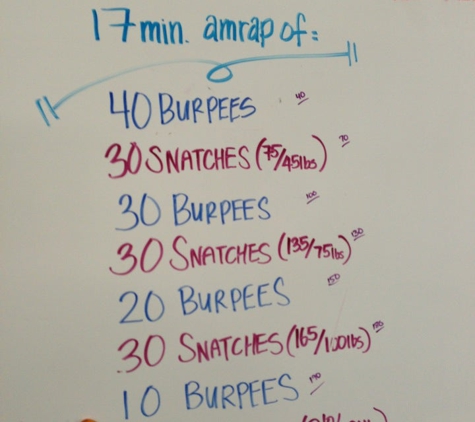 17 min. amrap of:
40 BURPEES 40
30 SNATCHES (75/45lbs) 70
30 BURPEES 100
30 SNATCHES (135/75lbs) 130
20 BURPEES 150
30 SNATCHES (165/100lbs) 180
10 BURPEES 190